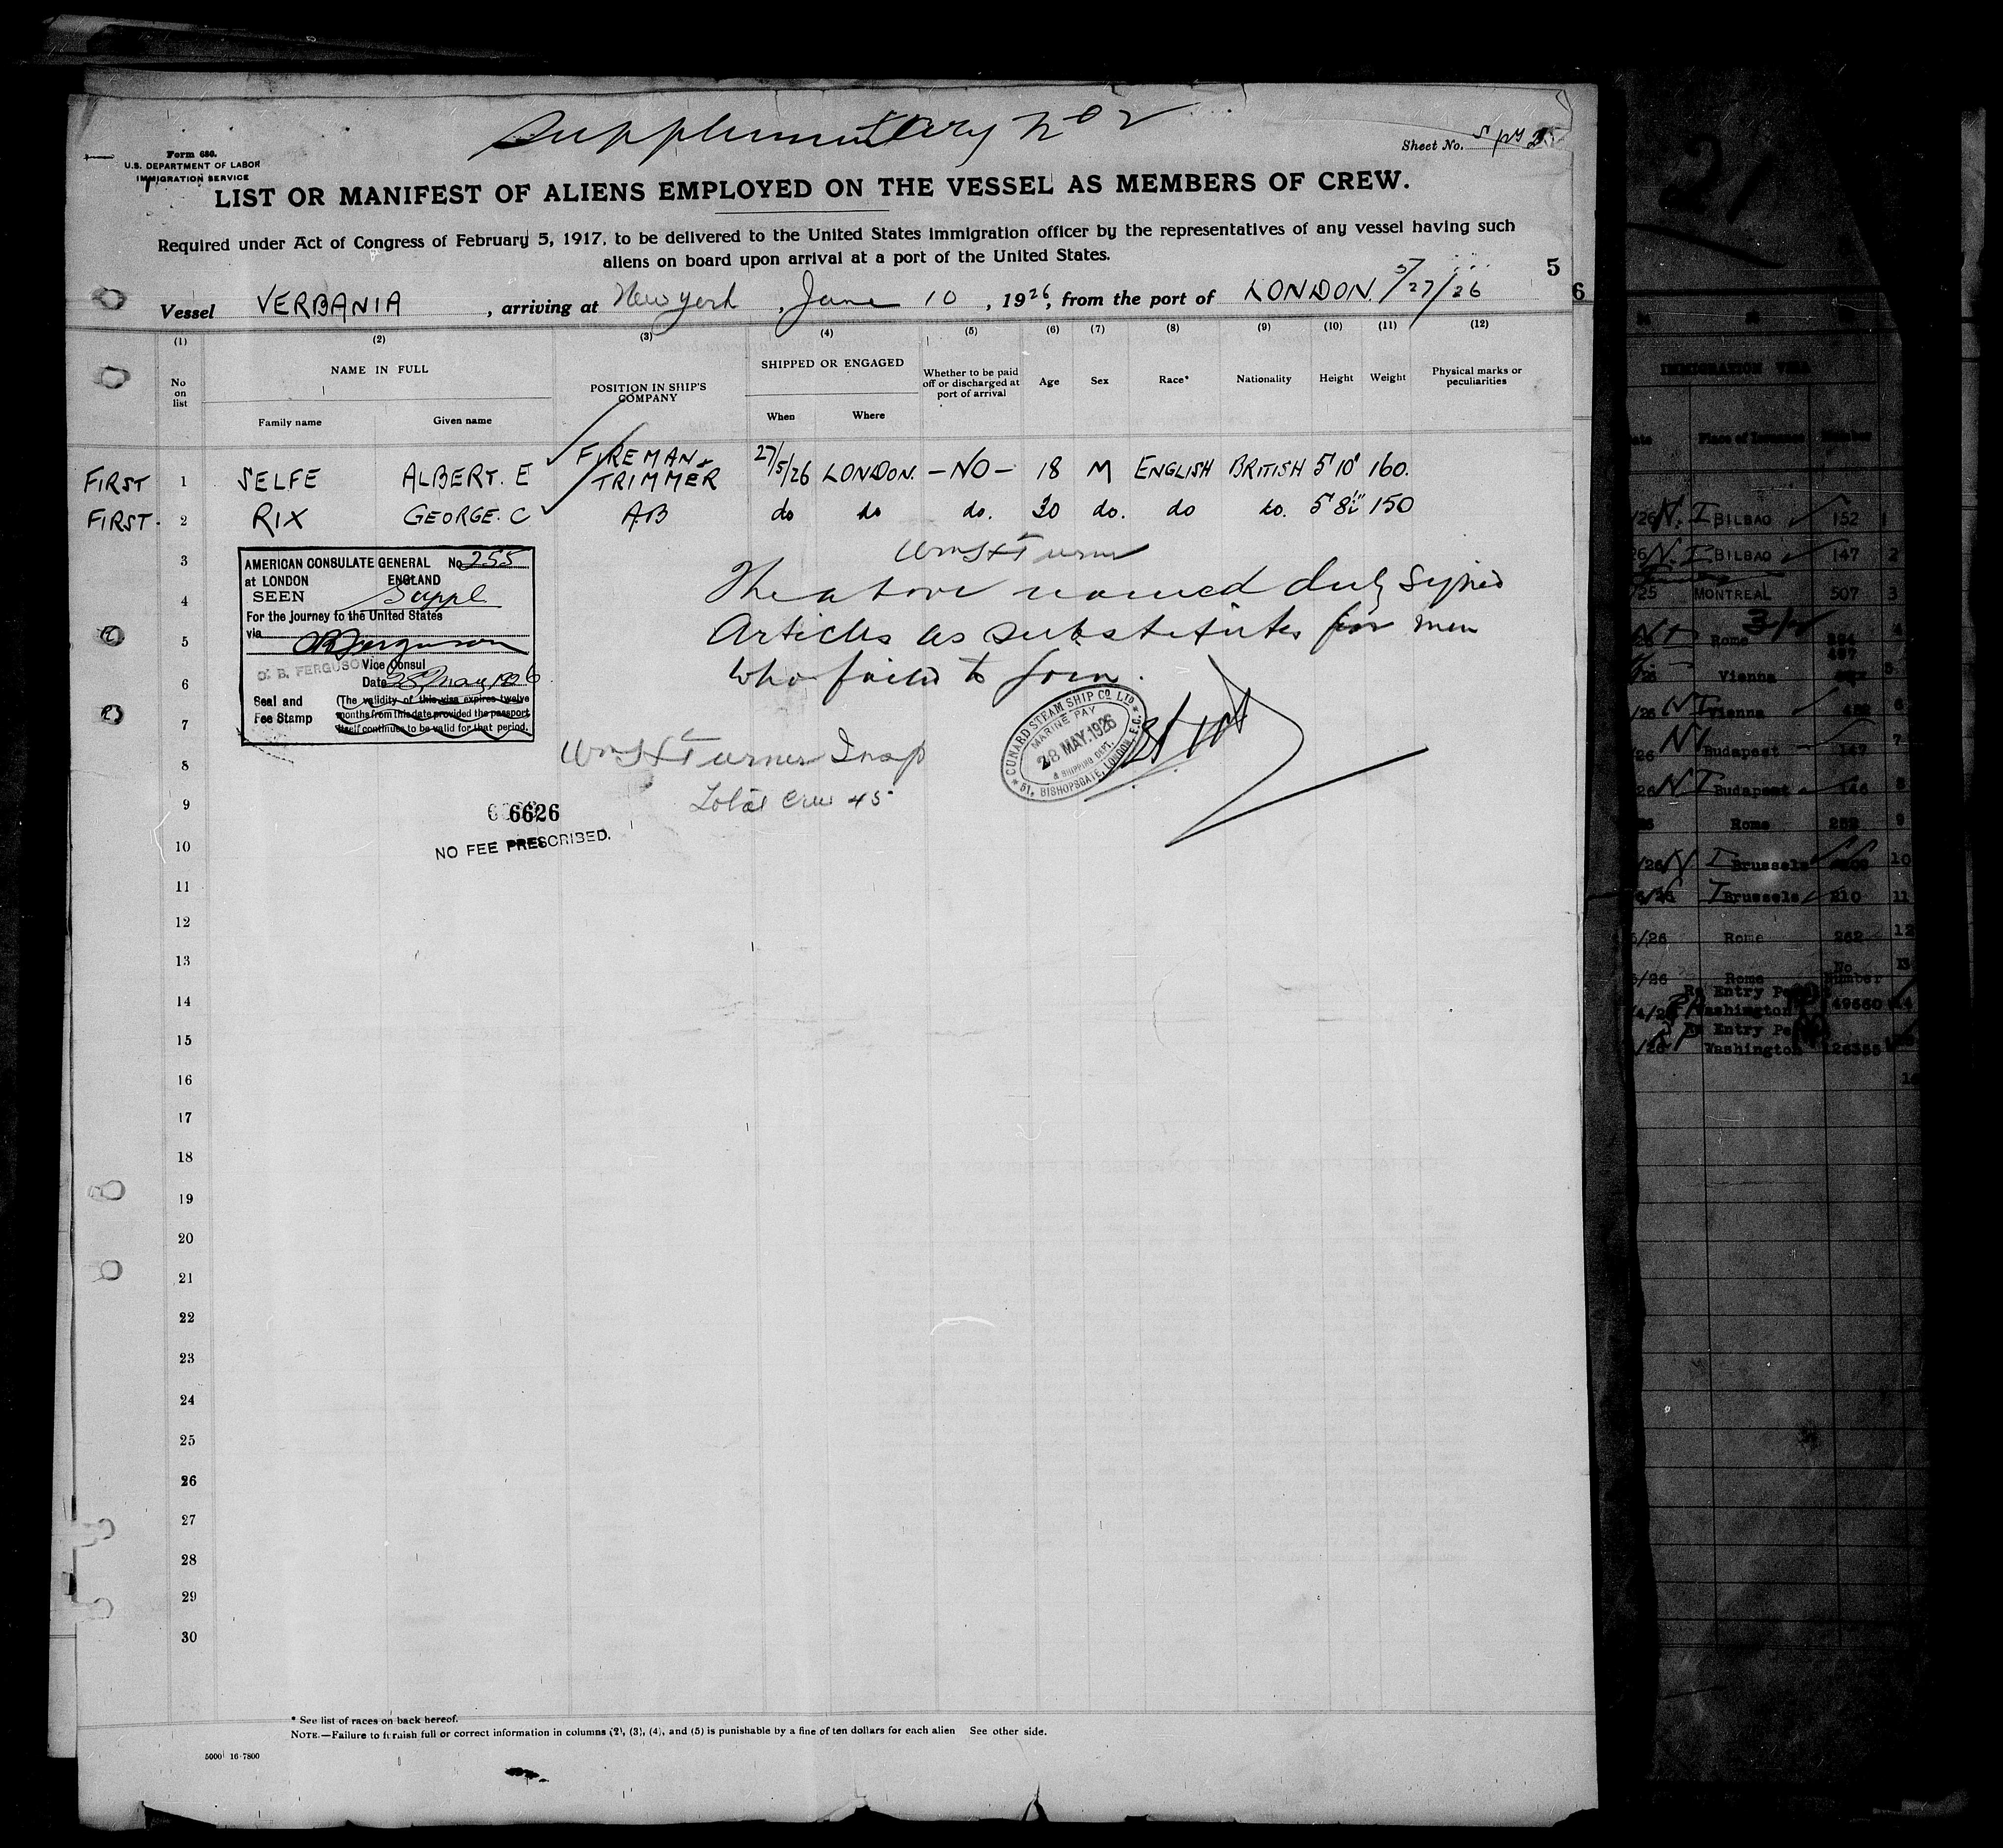 Supplementary No 2
Form 680.
U.S. DEPARTMENT OF LABOR
IMMIGRATION SERVICE
Sheet No.
LIST OR MANIFEST OF ALIENS EMPLOYED ON THE VESSEL AS MEMBERS OF CREW.
Required under Act of Congress of February 5, 1917, to be delivered to the United States immigration officer by the representatives of any vessel having such
aliens on board upon arrival at a port of the United States.
5
6
Vessel VERBANIA, arriving at New York, June 10, 1926, from the port of LONDON. 5/27/26
(1) (2) (3) (4) (5) (6) (7) (8) (9) (10) (11) (12)
No on list
NAME IN FULL
Family name Given name
POSITION IN SHIP'S COMPANY
SHIPPED OR ENGAGED
When Where
Whether to be paid off or discharged at port of arrival
Age Sex Race* Nationality Height Weight
Physical marks or peculiarities
FIRST 1 SELFE ALBERT. E FIREMAN + TRIMMER 27/5/26 LONDON. - NO - 18 M ENGLISH BRITISH 5'10" 160.
FIRST. 2 RIX GEORGE. C A.B do do do. 30 do. do do. 5'8½" 150
3
4
5
6
7
8
9
10
11
12
13
14
15
16
17
18
19
20
21
22
23
24
25
26
27
28
29
30
AMERICAN CONSULATE GENERAL No 255
at LONDON ENGLAND
SEEN Suppl
For the journey to the United States
via
O. B. FERGUSON
Vice Consul
Date 28 May 1926
Seal and Fee Stamp
(The validity of this visa expires twelve
months from this date provided the passport
itself continues to be valid for that period.
Wm H Turner
The above named duly signed
Articles as substitutes for men
who failed to join.
CUNARD STEAM SHIP CO LTD
MARINE PAY
28 MAY. 1926
& SHIPPING DEPT.
51, BISHOPSGATE, LONDON, E.C.
Wm H Turner Insp
Total Crew 45
6626
NO FEE PRESCRIBED.
* See list of races on back hereof.
NOTE.—Failure to furnish full or correct information in columns (2), (3), (4), and (5) is punishable by a fine of ten dollars for each alien See other side.
5000 16-7800
21
IMMIGRATION VISA
Place of Issuance Number
BILBAO 152 1
BILBAO 147 2
MONTREAL 507 3
Rome 4
Vienna 5
Vienna 6
Budapest 147 7
Budapest 146 8
Rome 252 9
Brussels 10
Brussels 210 11
Rome 262 12
Rome No Number 13
Re Entry
Washington 49660 14
Re Entry
Washington